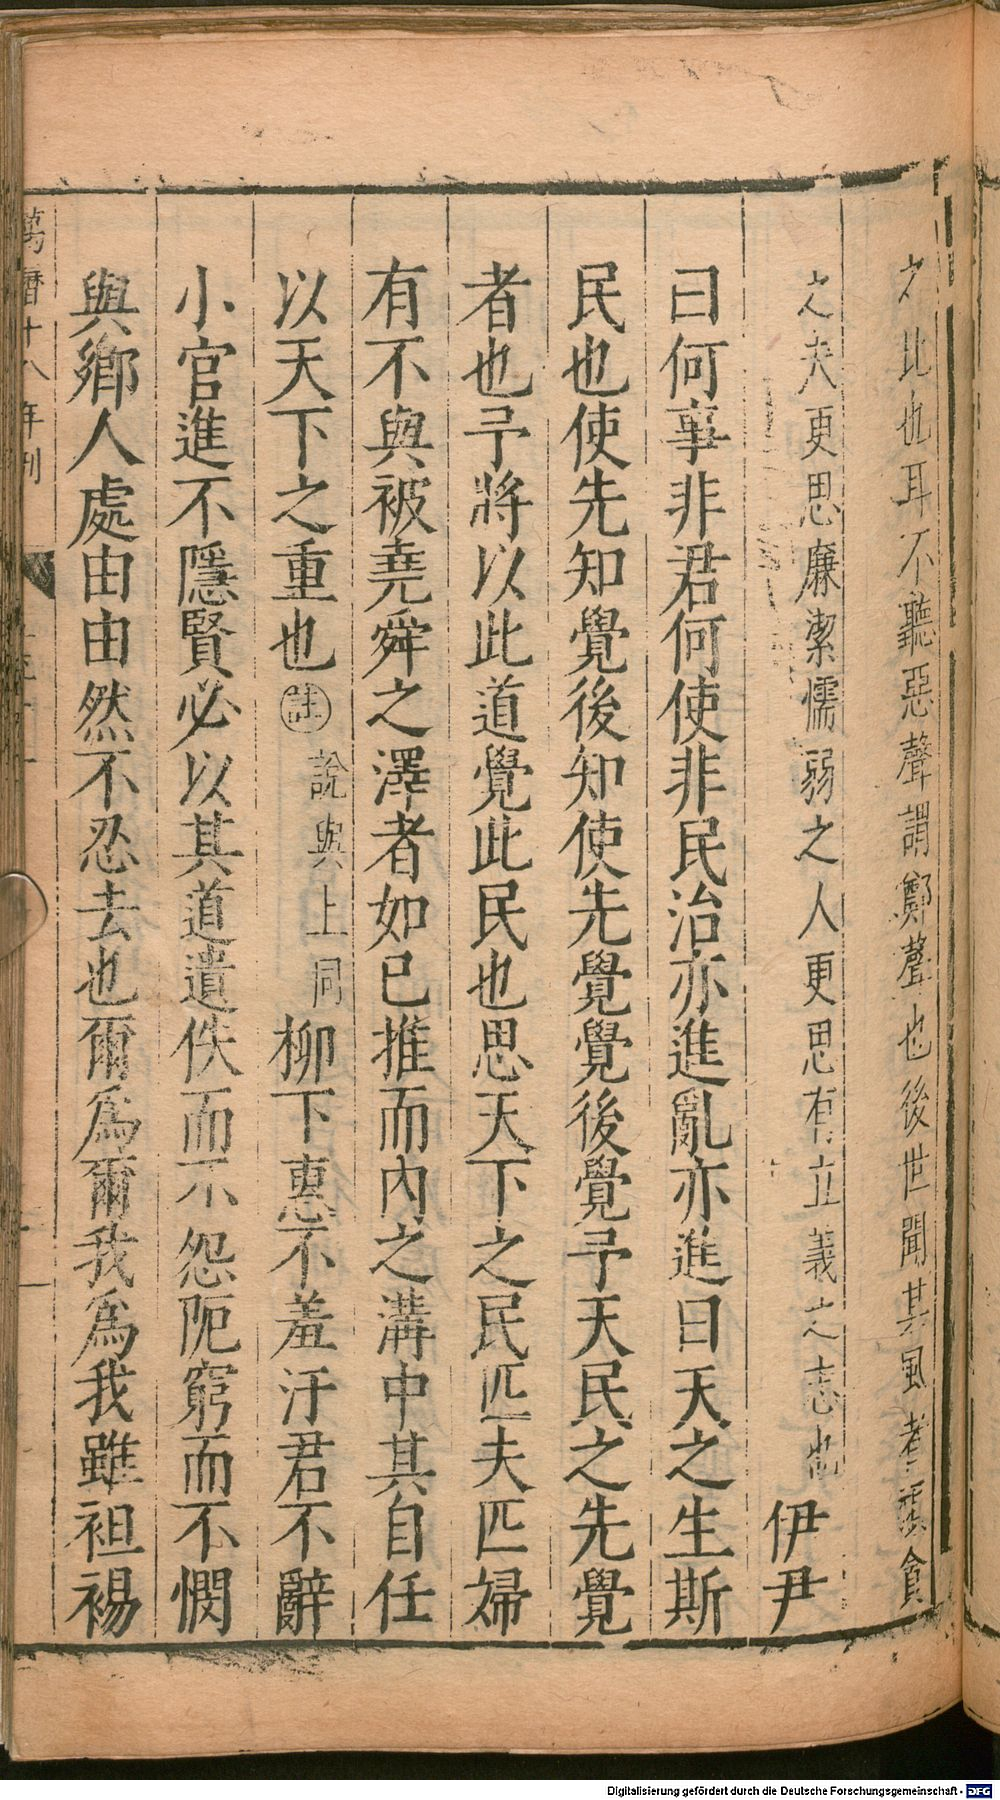 之比也耳不聽惡聲謂鄭聲也後世聞其風者頑貪
之夫更思廉潔懦弱之人更思有立義之志也伊尹
曰何事非君何使非民治亦進亂亦進曰天之生斯
民也使先知覺後知使先覺覺後覺予天民之先覺
者也予將以此道覺此民也思天下之民匹夫匹婦
有不與被堯舜之澤者如己推而內之溝中其自任
以天下之重也註說與上同柳下惠不羞汙君不辭
小官進不隱賢必以其道遺佚而不怨阨窮而不憫
與鄉人處由由然不忍去也爾為爾我為我雖袒裼
萬曆十八年刊
Digitalisierung gefördert durch die Deutsche Forschungsgemeinschaft - DFG